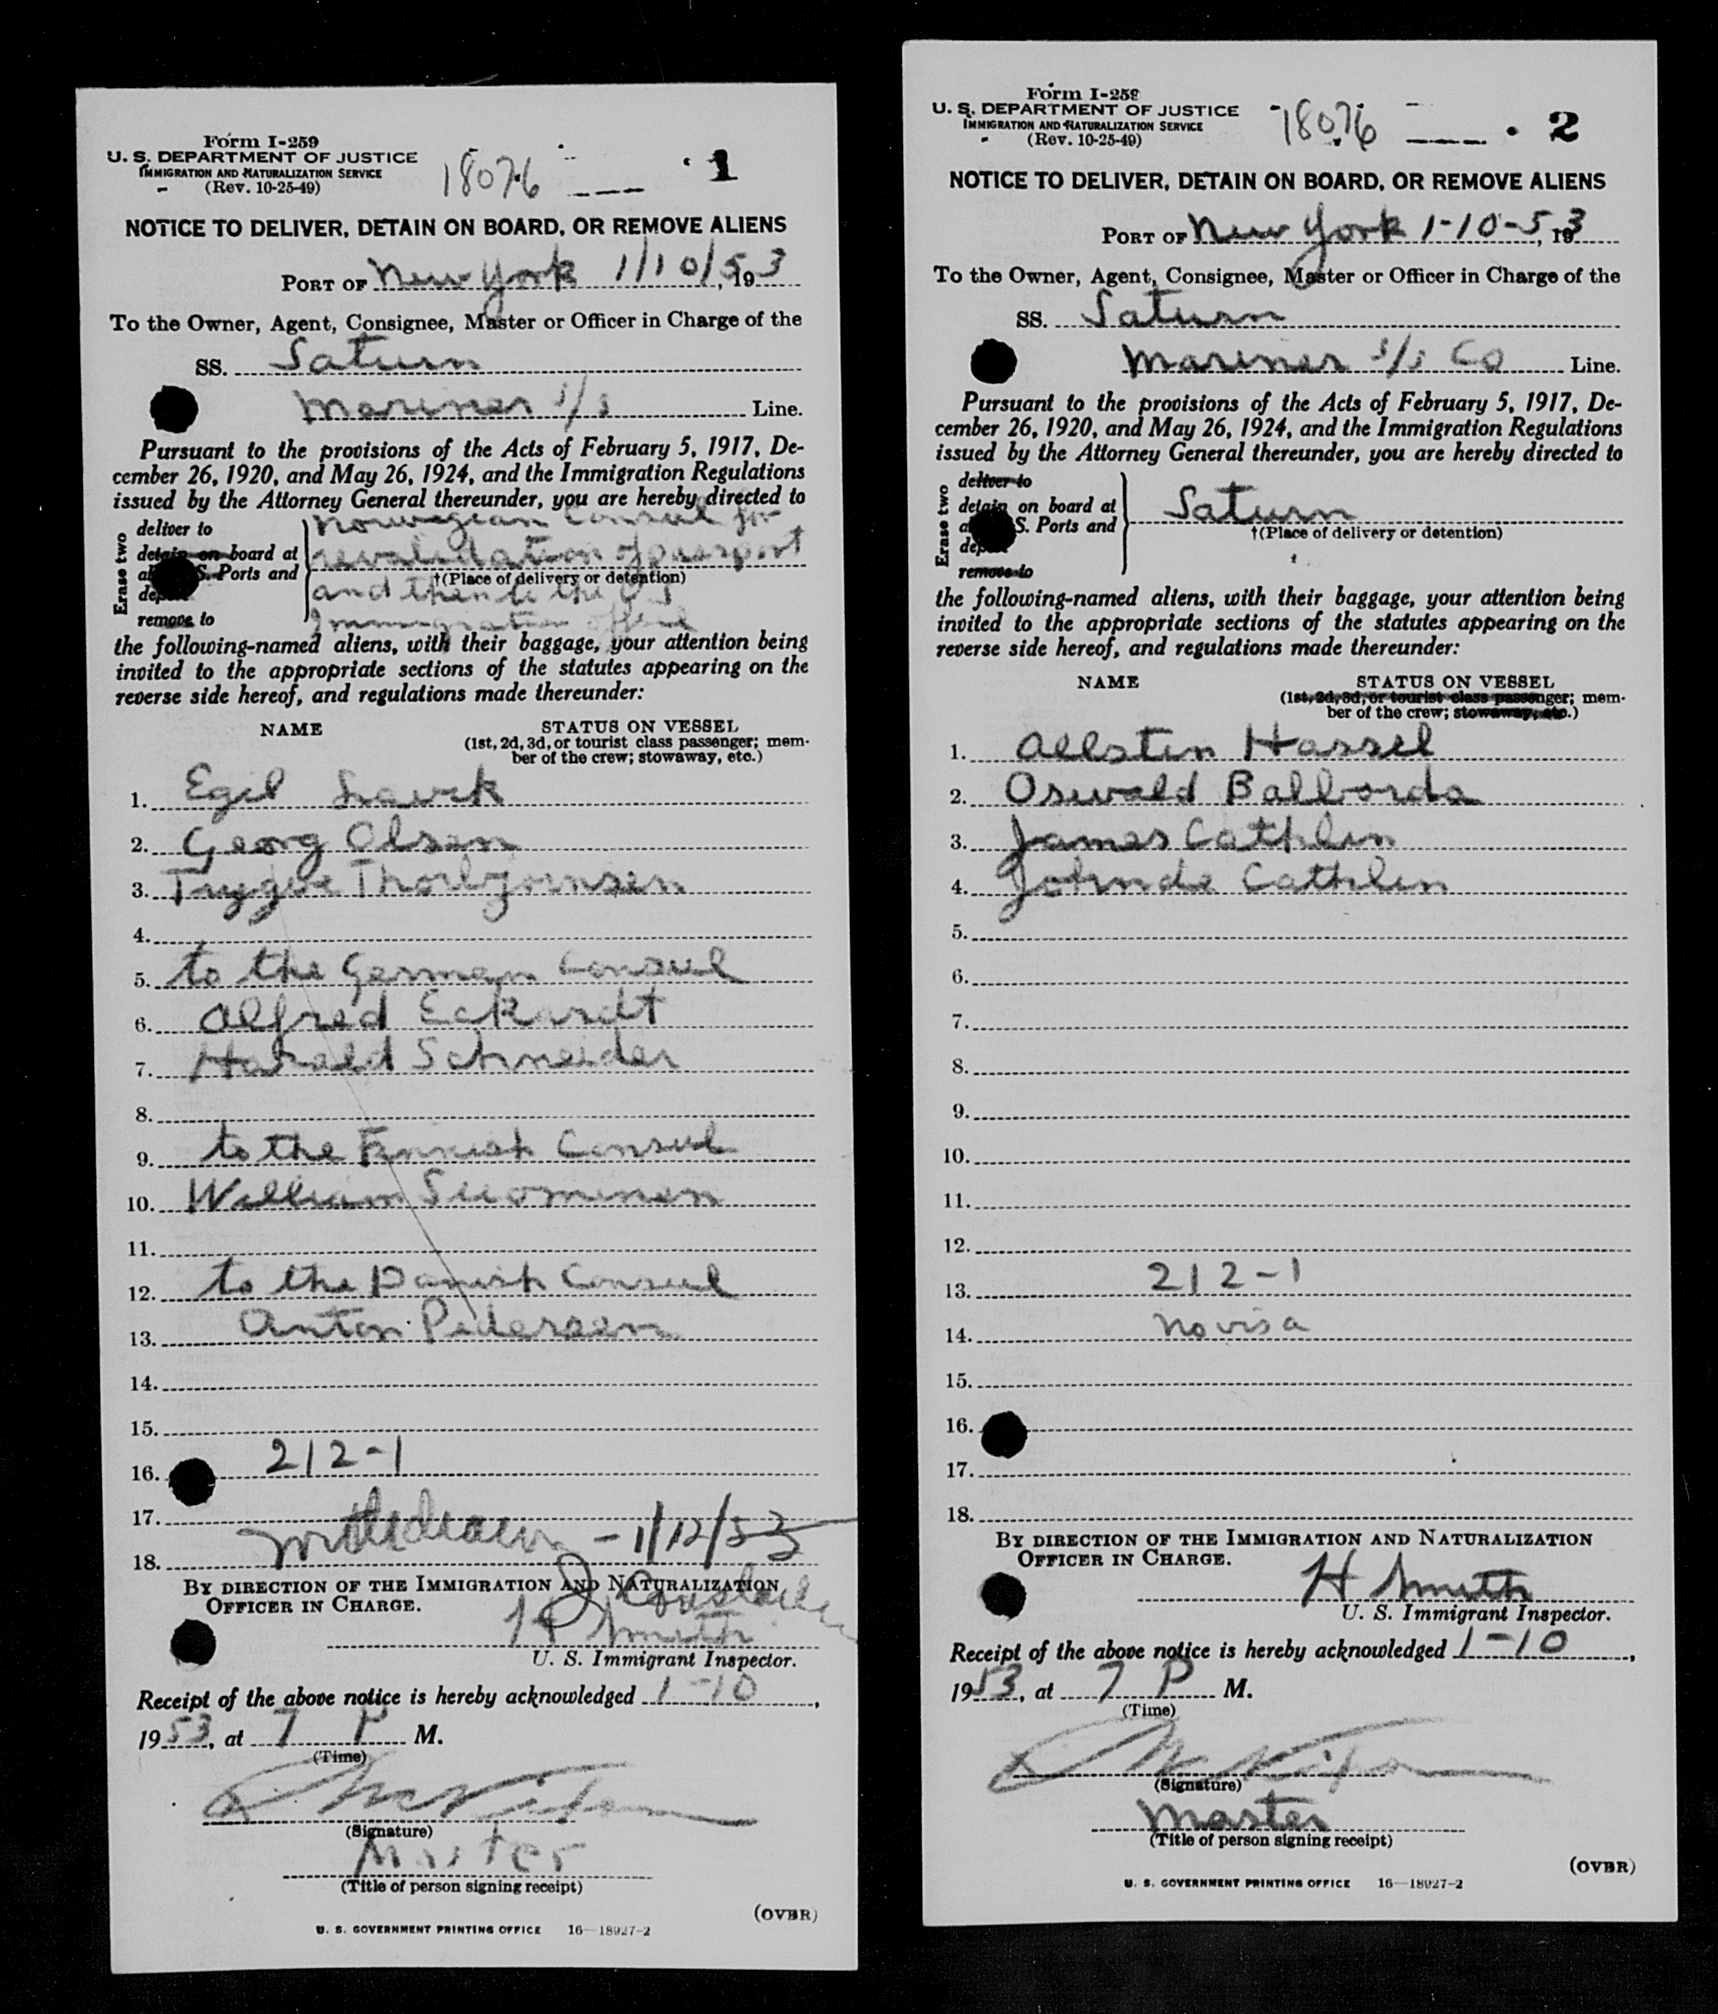 Form I-259
U. S. DEPARTMENT OF JUSTICE
IMMIGRATION AND NATURALIZATION SERVICE
(Rev. 10-25-49)
18076
1
NOTICE TO DELIVER, DETAIN ON BOARD, OR REMOVE ALIENS
PORT OF New York 1/10/53, 1953
To the Owner, Agent, Consignee, Master or Officer in Charge of the
SS. Saturn
Mariner s/s Line.
Pursuant to the provisions of the Acts of February 5, 1917, De-
cember 26, 1920, and May 26, 1924, and the Immigration Regulations
issued by the Attorney General thereunder, you are hereby directed to
Erase two
deliver to
detain on board at
S. Ports and
remove to
Norwegian Consul for
revalidation of passport
†(Place of delivery or detention)
and then to the US
Immigration office
the following-named aliens, with their baggage, your attention being
invited to the appropriate sections of the statutes appearing on the
reverse side hereof, and regulations made thereunder:
NAME STATUS ON VESSEL
(1st, 2d, 3d, or tourist class passenger; mem-
ber of the crew; stowaway, etc.)
1. Egil
2. Georg Olsen
3. Trygve Thorbjornsen
4.
5. to the German Consul
6. Alfred Eckardt
7. Harald Schneider
8.
9. to the Finnish Consul
10. William Suominen
11.
12. to the Danish Consul
13. Anton Pedersen
14.
15.
16. 212-1
17.
18. Withdrawn - 1/12/53
BY DIRECTION OF THE IMMIGRATION AND NATURALIZATION
OFFICER IN CHARGE.
H Smith
U. S. Immigrant Inspector.
Receipt of the above notice is hereby acknowledged 1-10,
1953, at 7 P M.
(Time)
(Signature)
Master
(Title of person signing receipt)
(OVER)
U. S. GOVERNMENT PRINTING OFFICE 16—18927-2
Form I-259
U. S. DEPARTMENT OF JUSTICE
IMMIGRATION AND NATURALIZATION SERVICE
(Rev. 10-25-49)
18076
2
NOTICE TO DELIVER, DETAIN ON BOARD, OR REMOVE ALIENS
PORT OF New York 1-10-53, 193
To the Owner, Agent, Consignee, Master or Officer in Charge of the
SS. Saturn
Mariner s/s Co Line.
Pursuant to the provisions of the Acts of February 5, 1917, De-
cember 26, 1920, and May 26, 1924, and the Immigration Regulations
issued by the Attorney General thereunder, you are hereby directed to
Erase two
deliver to
detain on board at
S. Ports and
remove to
Saturn
†(Place of delivery or detention)
the following-named aliens, with their baggage, your attention being
invited to the appropriate sections of the statutes appearing on the
reverse side hereof, and regulations made thereunder:
NAME STATUS ON VESSEL
(1st, 2d, 3d, or tourist class passenger; mem-
ber of the crew; stowaway, etc.)
1. Allsten Hassel
2. Oswald Balborda
3. James Cathlin
4. Johnde Cathlin
5.
6.
7.
8.
9.
10.
11.
12.
13. 212-1
14. No visa
15.
16.
17.
18.
BY DIRECTION OF THE IMMIGRATION AND NATURALIZATION
OFFICER IN CHARGE.
H Smith
U. S. Immigrant Inspector.
Receipt of the above notice is hereby acknowledged 1-10,
1953, at 7 P M.
(Time)
(Signature)
Master
(Title of person signing receipt)
(OVER)
U. S. GOVERNMENT PRINTING OFFICE 16—18927-2